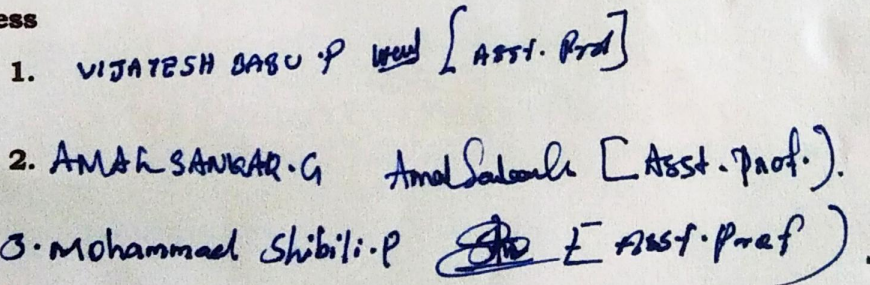 ess
1. VIJAYESH BABU .P [ASST. Prof]
2. AMAL SANKAR.G [Asst. Prof.).
3. Mohammad Shibili.P [Asst. Prof)